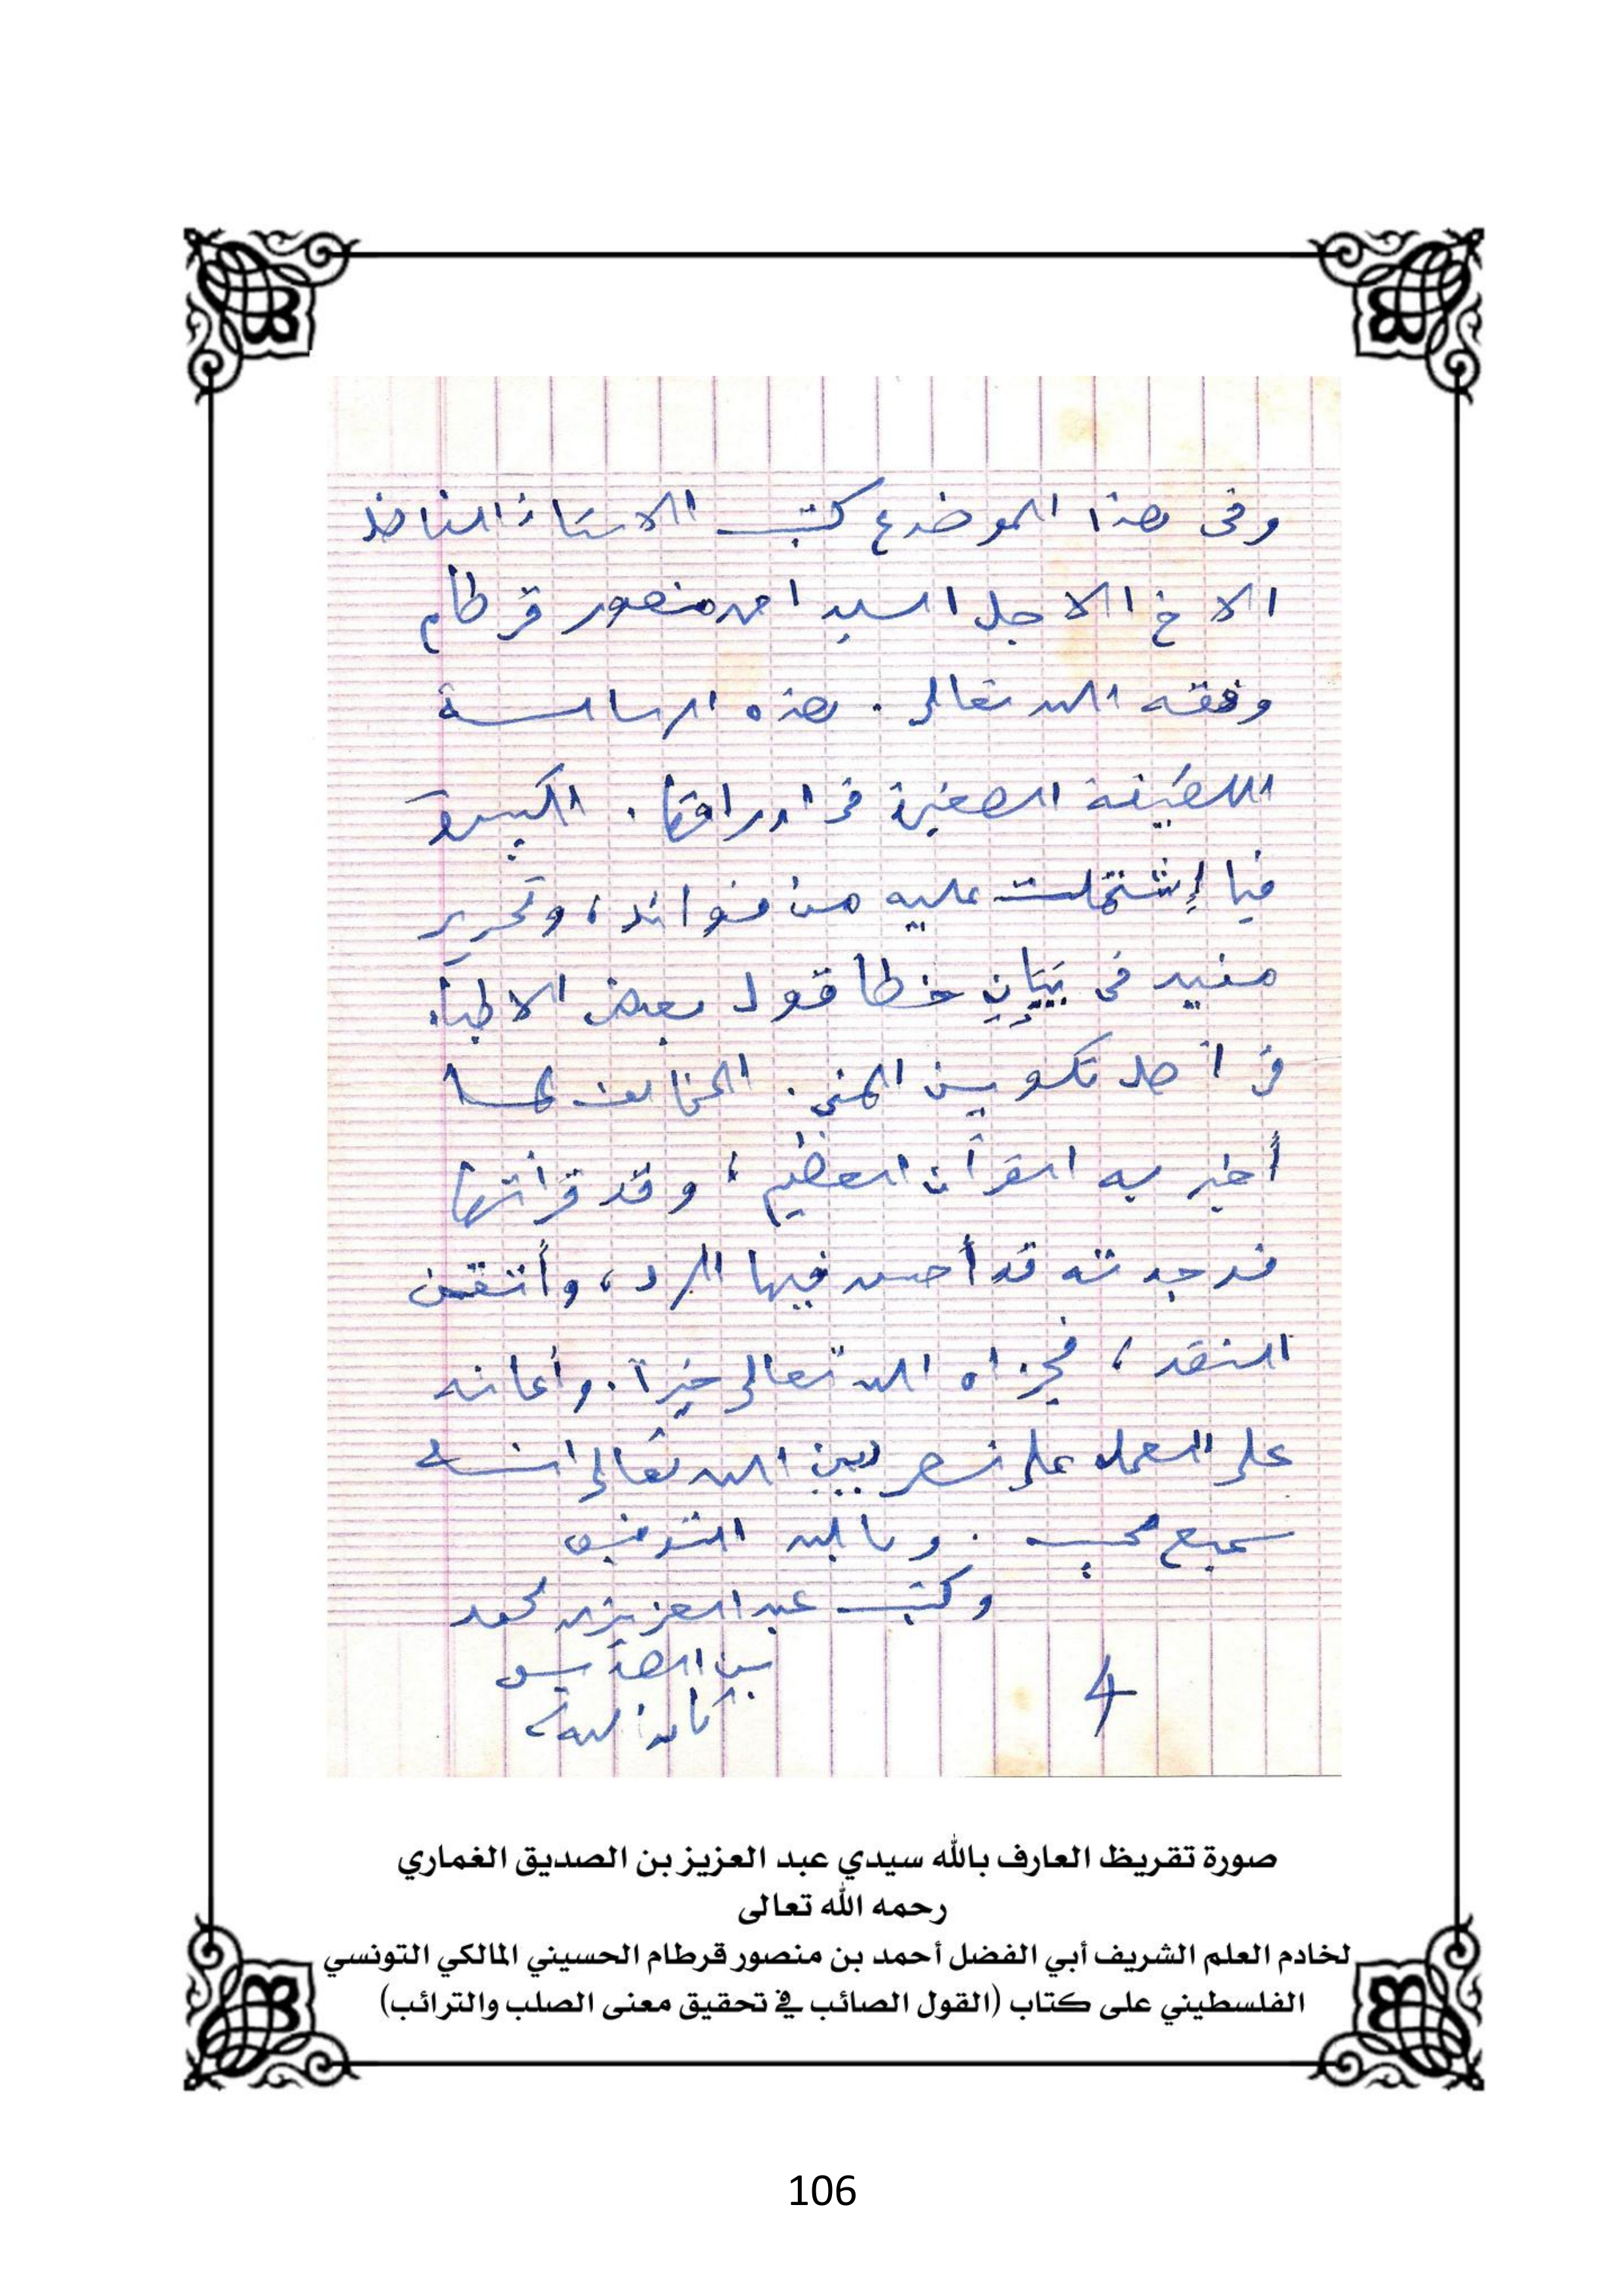 وفى هذا الموضوع كتب الاستاذ الفاضل
الاخ الاجل السيد احمد منصور قرطام
وفقه الله تعالى . هذه الرسالة
اللطيفة الصغيرة فى اوراقها . الكبيرة
فيما إشتملت عليه من فوائد ، وتحرير
مفيد فى بَيَانِ خطأ قول بعض الاطباء
فى أصل تكوين المني . المخالف لما
أخبر به القرآن العظيم ؛ وقد قرأتها
فوجدته قد أحسن فيها الرد ، وأتقن
النقد ، فجزاه الله تعالى خيراً . وأعانه
على العمل على نصر دين الله تعالى انه
سميع مجيب . وبالله التوفيق
وكتب عبد العزيز بن محمد
بن الصديق
كان الله له
4
صورة تقريظ العارف بالله سيدي عبد العزيز بن الصديق الغماري
رحمه الله تعالى
لخادم العلم الشريف أبي الفضل أحمد بن منصور قرطام الحسيني المالكي التونسي
الفلسطيني على كتاب (القول الصائب في تحقيق معنى الصلب والترائب)
106